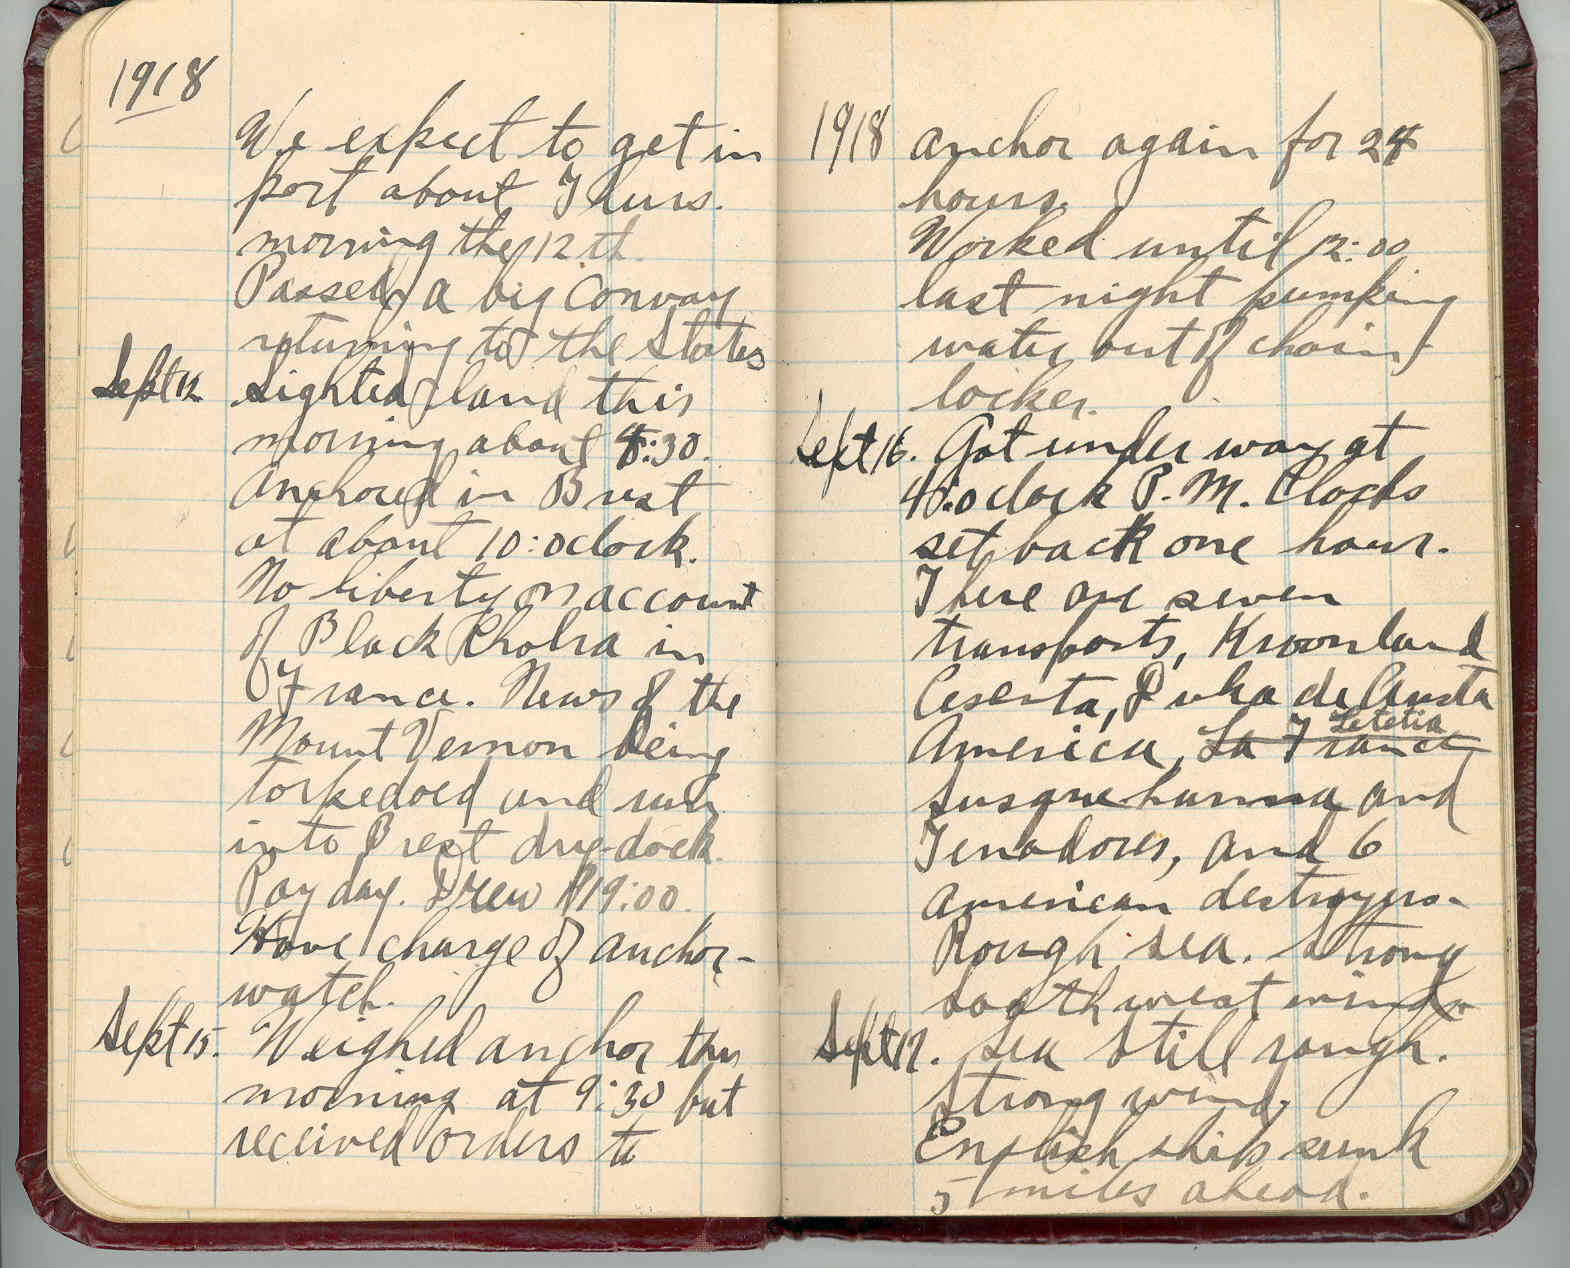 1918
We expect to get in
port about Thurs.
morning the 12th.
Passed a big Convoy
returning to the States
Sept 12 Sighted land this
morning about 4:30.
Anchored in Brest
at about 10:oclock.
No liberty on account
of Black Cholra in
France. News of the
Mount Vernon being
torpedoed and run
into Brest dry-dock.
Pay day. Drew $19:00.
Have charge of anchor-
watch.
Sept 15. Weighed anchor this
morning at 9:30 but
received orders to
1918 anchor again for 24
hours.
Worked until 12:00
last night pumping
water out of chain
locker.
Sept 16. Got under way at
4:oclock P.M. Clocks
set back one hour.
There are seven
transports, Kroonland
Ceserta, Duka de Austa
Letetia
America, La France,
Susquehanna and
Tenadores, and 6
American destroyers.
Rough sea. Strong
south west wind.
Sept 17. Sea still rough.
Strong wind.
English ship sunk
5 miles ahead.